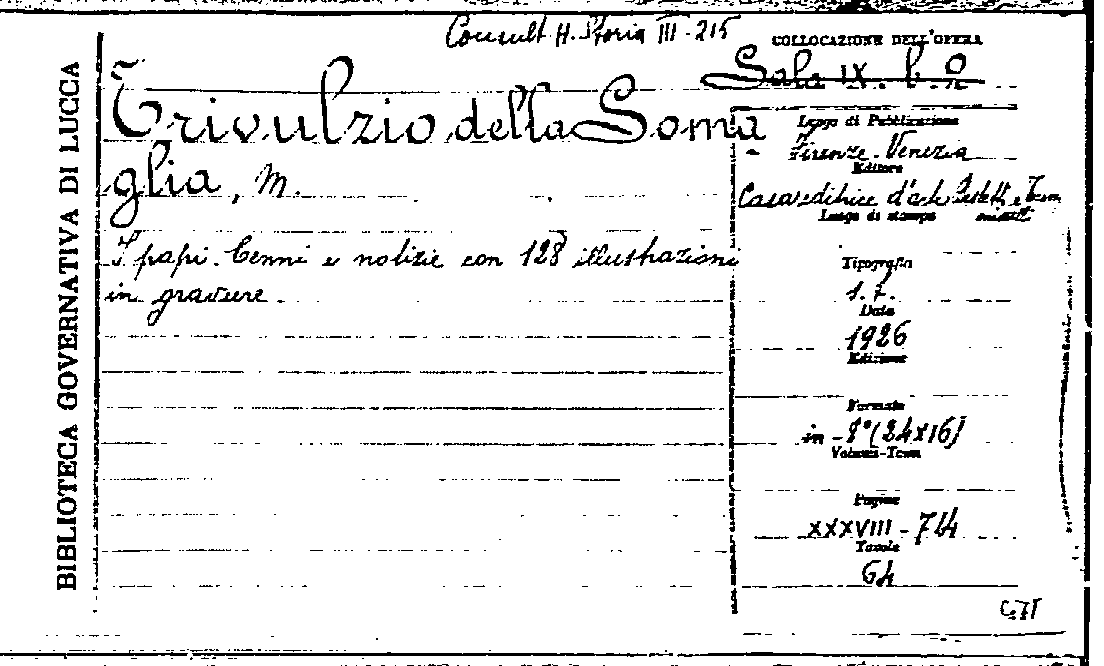 BIBLIOTECA GOVERNATIVA DI LUCCA
Consult. H. Storia III - 215
COLLOCAZIONE DELL'OPERA
Sala IX. b. 2
Trivulzio della Soma
glia, M.
I papi. Cenni e notizie con 128 illustrazioni
in gravure.
Luogo di Pubblicazione
Firenze. Venezia
Editore
Casa editrice d'arte Bestetti e Tum
minelli
Luogo di stampa
Tipografia
Data
1926
Edizione
Formato
in - 8° (24x16)
Volumi-Tomi
Pagine
XXXVIII - 714
Tavole
64